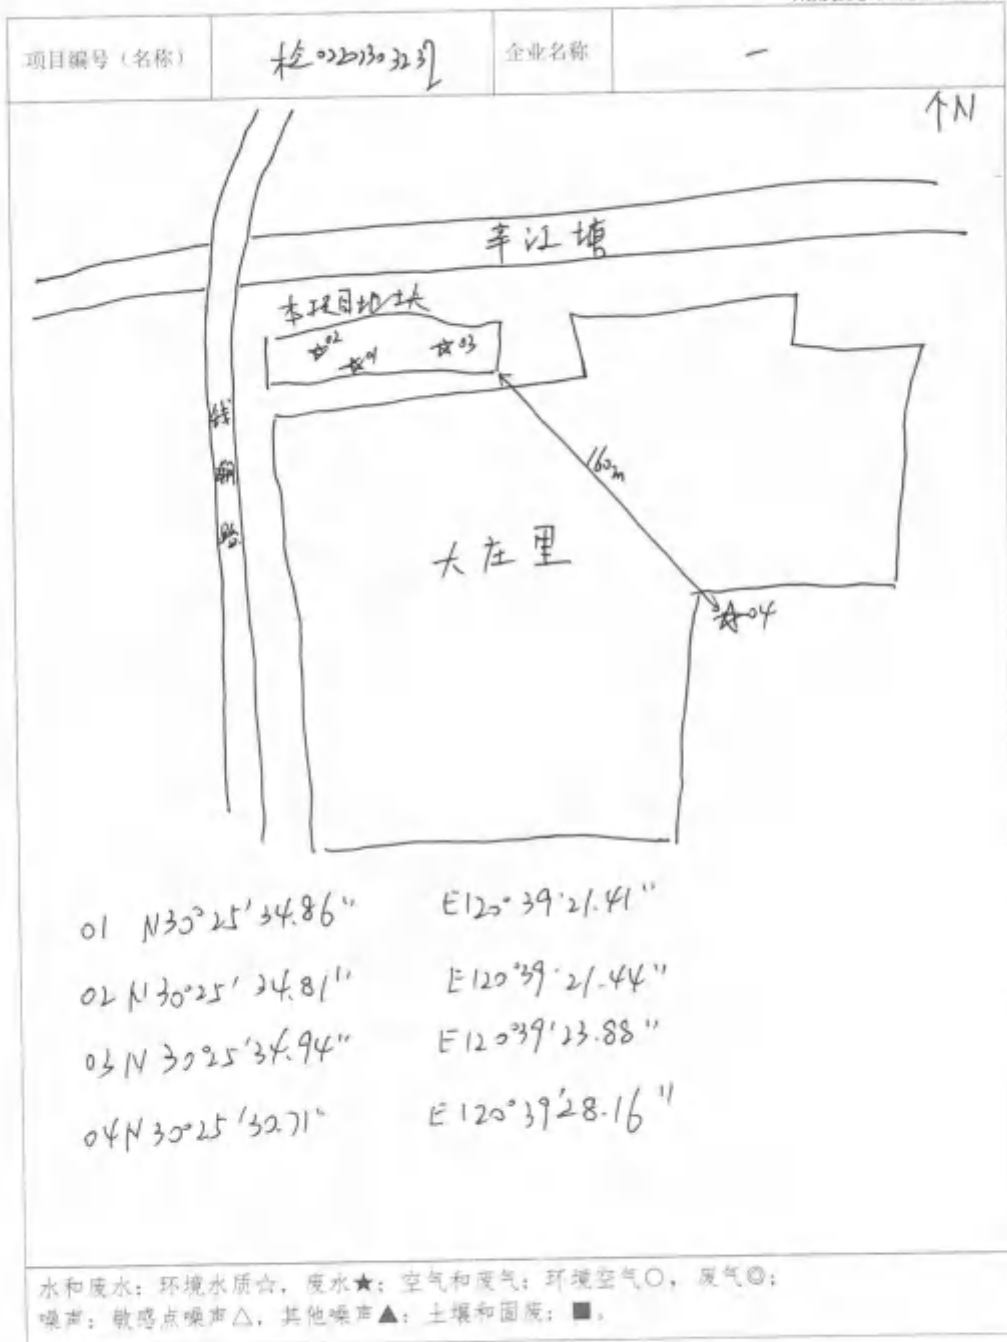 项目编号（名称）
检02201303237
企业名称
—
↑N
辛江塘
本项目地块
☆02
☆01
☆03
钱
路
160m
大庄里
☆04
01 N30°25'34.86" E120°39'21.41"
02 N30°25'34.81" E120°39'21.44"
03 N30°25'34.94" E120°39'23.88"
04 N30°25'30.71" E120°39'28.16"
水和废水：环境水质☆，废水★；空气和废气：环境空气○，废气◎；
噪声：敏感点噪声△，其他噪声▲；土壤和固废：■。